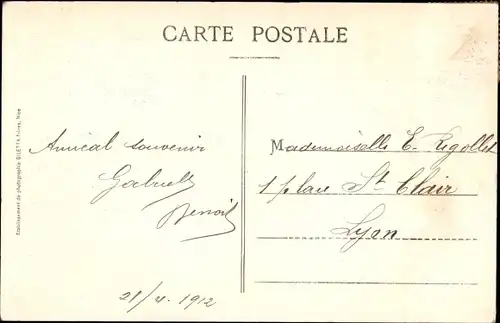 CARTE POSTALE
Etablissement de photographie GILETTA frères, Nice
Amical souvenir
Gabriell
Benoit
21/4. 1912
Mademoiselle E. Rigollet
1 place St Clair
Lyon